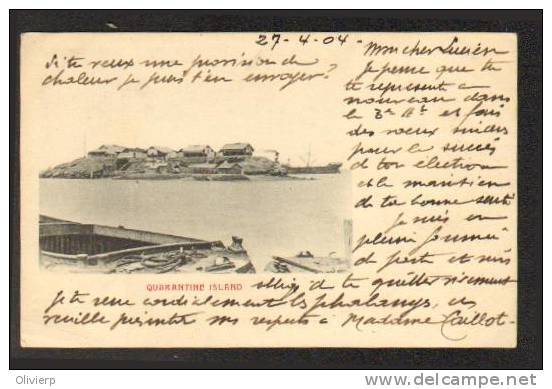 27-4-04
Si tu veux une provision de
chaleur je puis t'en envoyer?
Mon cher Lucien
Je pense que tu
te représente à
nouveau dans
le 3e At et fais
des voeux
pour le succès
de ton élection
et le maintien
de ta bonne santé
Je suis en
pleine
de peste et suis
obligé de te quitter
QUARANTINE ISLAND
Je te serre cordialement les phalanges,
veuille présenter mes respects à Madame Caillot.
© Olivierp
http://www.delcampe.net